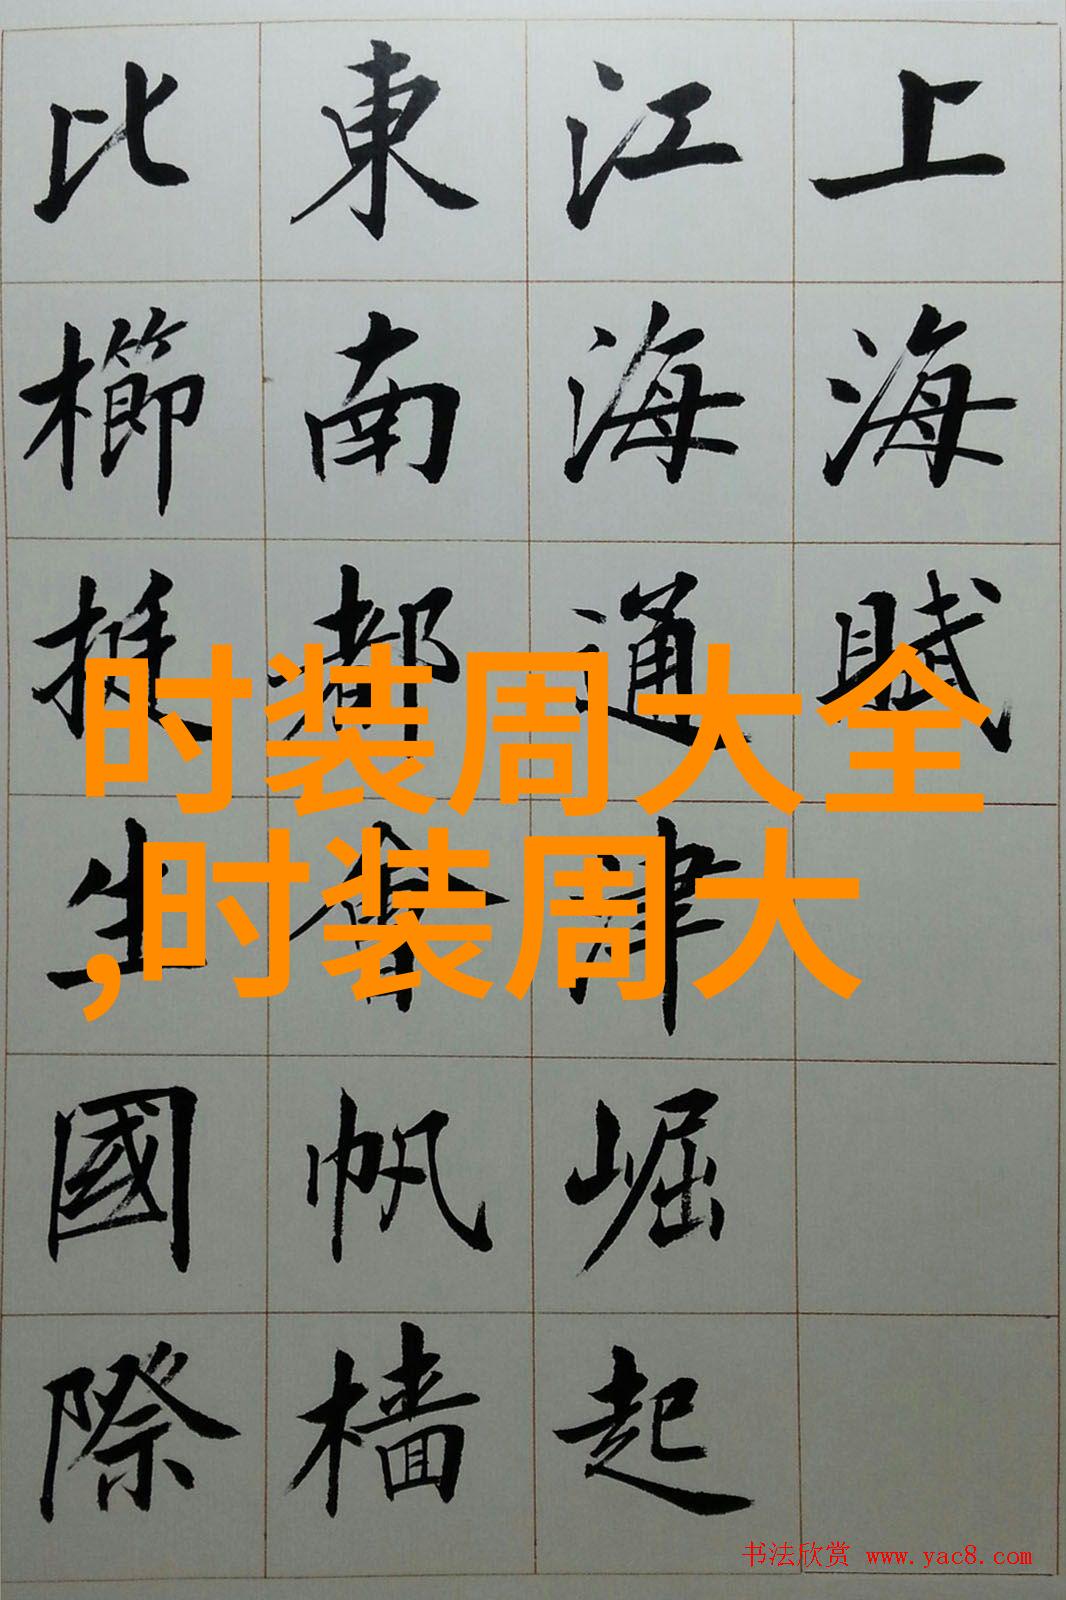 上海賦
江海通津崛起
東南都會帆檣
比櫛挺生國際
时装周大全
,时装周大
书法欣赏 www.yac8.com